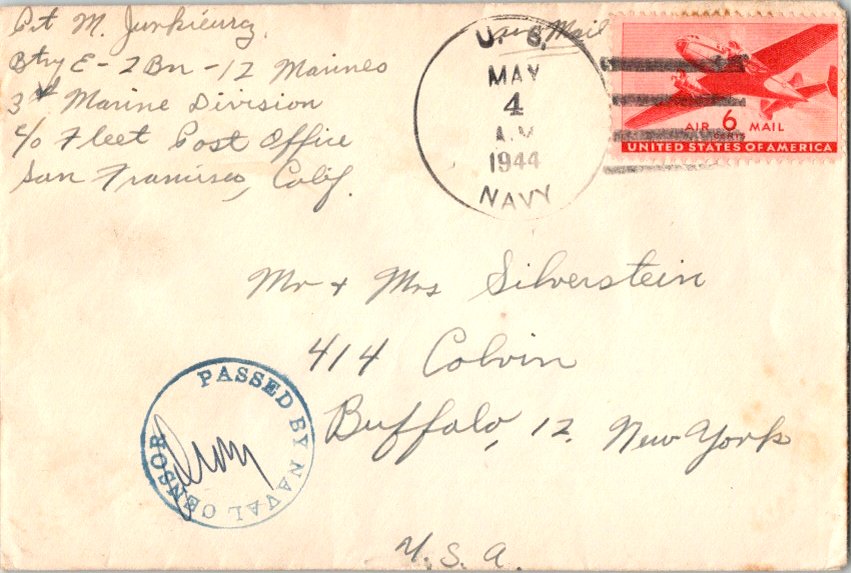 Pvt M. Junkiewrz.
Btry E - 2 Bn - 12 Marines
3rd Marine Division
c/o Fleet Post Office
San Francisco, Calif.
Mail
U. S.
MAY
4
A.M.
1944
NAVY
AIR 6 MAIL
CENTS
UNITED STATES OF AMERICA
Mr + Mrs Silverstein
414 Colvin
Buffalo, 12. New York
U.S.A.
PASSED BY NAVAL CENSOR